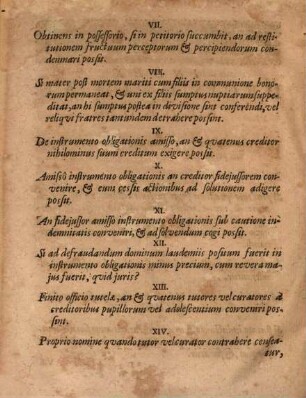 VII.
Obtinens in possessorio, si in petitorio succumbit, an ad resti-
tutionem fructuum perceptorum & percipiendorum con-
demnari possit.
VIIX.
Si mater post mortem mariti cum filiis in communione bono-
rum permaneat, & uni ex filiis sumptus nuptiarum suppe-
ditat, an hi sumptus postea in devisione sint conferendi, vel
reliqui fratres tantundem detrahere possint.
IX.
De instrumento obligationis amisso, an & quatenus creditor
nihilominus suum creditum exigere possit.
X.
Amisso instrumento obligationis an creditor fidejussorem con-
venire, & eum cessis actionibus ad solutionem adigere
possit.
XI.
An fidejussor amisso instrumento obligationis sub cautione in-
demnitatis conveniri, & ad solvendum cogi possit.
XII.
Si ad defraudandum dominum laudemiis positum fuerit in
instrumento obligationis minus precium, cum revera ma-
jus fuerit, quid juris?
XIII.
Finito officio tutelæ, an & quatenus tutores vel curatores à
creditoribus pupillorum vel adulescentium conveniri pos-
sint.
XIV.
Proprio nomine quando tutor vel curator contrahere censea-
tur,